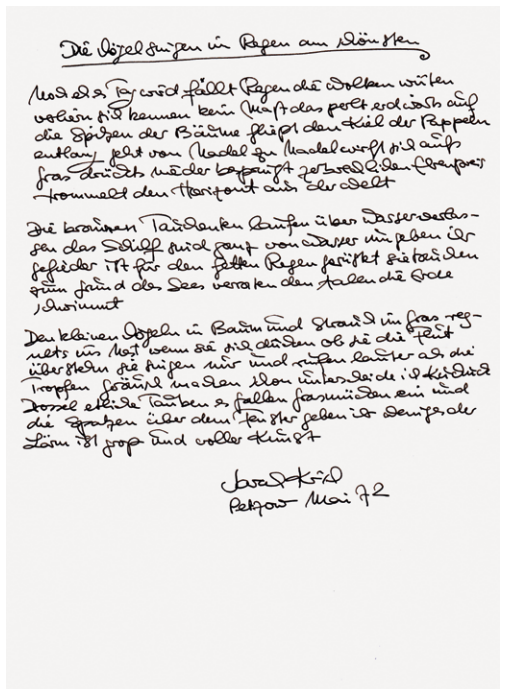 Die Vögel singen im Regen am schönsten
Noch eh es Tag wird fällt Regen die Wolken wüten
vorhin sie kennen kein Maß das perlt erdwärts auf
die Spitzen der Bäume fließt den Kiel der Pappeln
entlang geht von Nadel zu Nadel wirft sich aufs
Gras drückt nieder den Ehrenpreis
trommelt den Horizont aus der Welt
Die braunen Tauchenten laufen über Wasser verlas-
sen das Schilf sind ganz von Wasser umgeben ihr
Gefieder ist für den fetten Regen gerüstet sie tauchen
zum Grund des Sees verraten den Aalen die Erde
schwimmt
Den kleinen Vögeln in Baum und Strauch im Gras reg-
nets ins Nest wenn sie sich ducken ob sie die Flut
überstehn sie singen nur und rufen lauter als die
Tropfen Geräusch machen schon unterscheide ich
Drossel etliche Tauben es fallen Grasmücken ein und
die Spatzen über dem Fenster geben ihr weniges der
Lärm ist groß und voller Kunst
Sarah Kirsch
Petzow Mai 72